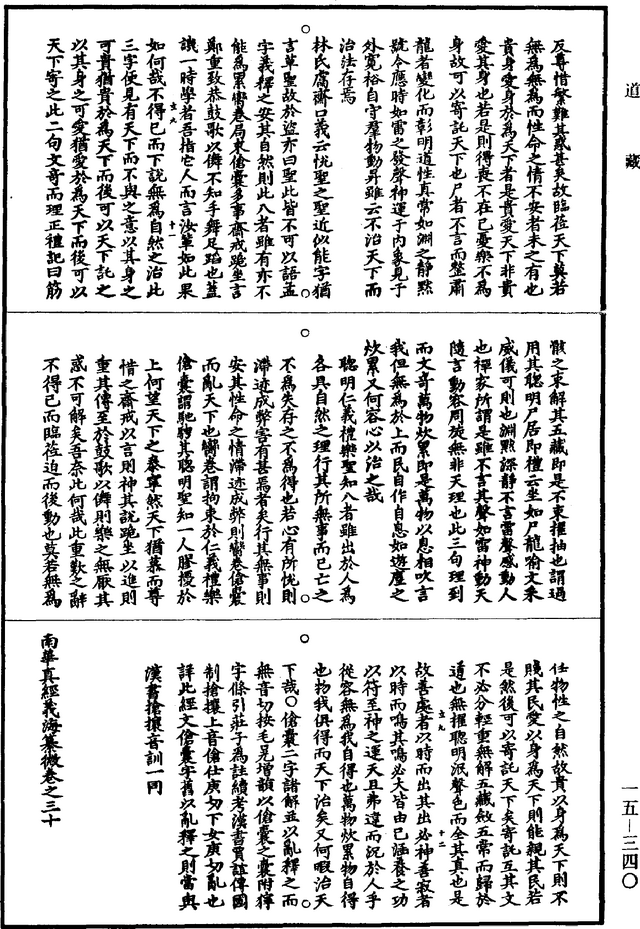 道藏
反尊惜繁難其惑甚矣故臨莅天下莫若
無為無為而性命之情不安者未之有也
貴身愛身於為天下者是貴愛天下非貴
愛其身也若是則得喪不在己憂樂不為
身故可以寄託天下也尸者不言而整肅
龍者變化而彰明道性真常如淵之靜默
號令應時如雷之發聲神運于內象見于
外寬裕自守群物動昇雖云不治天下而
治法存焉
林氏鬳齋口義云悅聖之聖近似能字猶
言草聖故於盜亦曰聖此皆不可以語孟
字義釋之安其自然則此八者雖有亦不
能為累臠卷局束傖囊多事齋戒跪坐言
鄭重致恭鼓歌以儛不知手舞足蹈也蓋
譏一時學者吾指它人而言汝輩如此果
如何哉不得已而下說無為自然之治此
三字便見有天下而不與之意以其身之
可貴猶貴於為天下而後可以託天下
以其身之可愛猶愛於為天下而後可以
天下寄之此二句文奇而理正禮記曰筋
骸之束解其五藏即是不束擢抽也謂過
用其聰明尸居即禮云坐如尸龍喻文采
威儀可則也淵默深靜不言雷聲感動人
也禪家所謂是雖不言其聲如雷神動天
隨言動容周旋無非天理也此三句理到
而文奇萬物炊累即是萬物以息相吹言
我但無為於上而民自作自息如遊塵之
炊累又何容心以治之哉
聰明仁義禮樂聖知八者雖出於人為
各具自然之理行其所無事而已亡之
不為失存之不為得也若心有所悅則
滯迹成弊害有甚焉者矣行其無事則
安其性命之情滯迹成弊則臠卷傖囊
而亂天下也臠卷謂拘束於仁義禮樂
傖囊謂馳騁其聰明聖知一人膠擾於
上何望天下之泰寧然天下猶慕而尊
惜之齋戒以言則神其說跪坐以進則
重其傳至於鼓歌以儛則樂之無厭其
惑不可解矣吾奈此何哉此重歎之辭
不得已而臨莅迫而後動也莫若無為
任物性之自然故貴以身為天下則不
賤其民愛以身為天下則能親其民若
是然後可以寄託天下矣寄託互其文
不必分輕重無解五藏斂五常而歸於
道也無擢聰明泯聲色而全其真也是
故善處者以時而出其出必神善寂者
以時而鳴其鳴必大皆由己涵養之功
以符至神之運天且弗違而況於人乎
從容無為我自得也萬物炊累物自得
也物我俱得而天下治矣又何暇治天
下哉○傖囊二字諸解並以亂釋之而
無音切按毛晃增韻以傖囊之囊附㺜
字條引莊子為註續考漢書賈誼傳國
制搶攘上音傖仕庚切下女庚切亂也
詳此經文傖囊字舊以亂釋之則當與
漢書搶攘音訓一同
南華真經義海纂微卷之三十
一五—三四〇